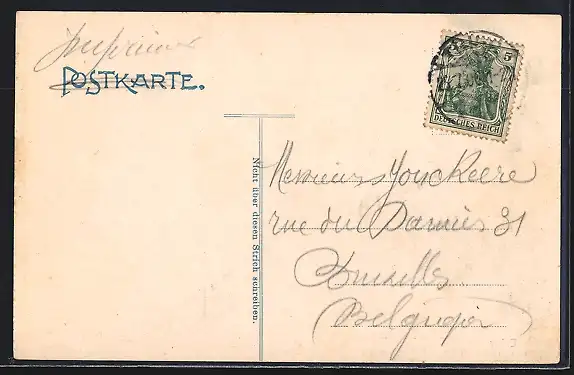 POSTKARTE.
5
DEUTSCHES REICH
Nicht über diesen Strich schreiben.
Messieurs Jonckeere
rue du Damier 31
Bruxelles
Belgique